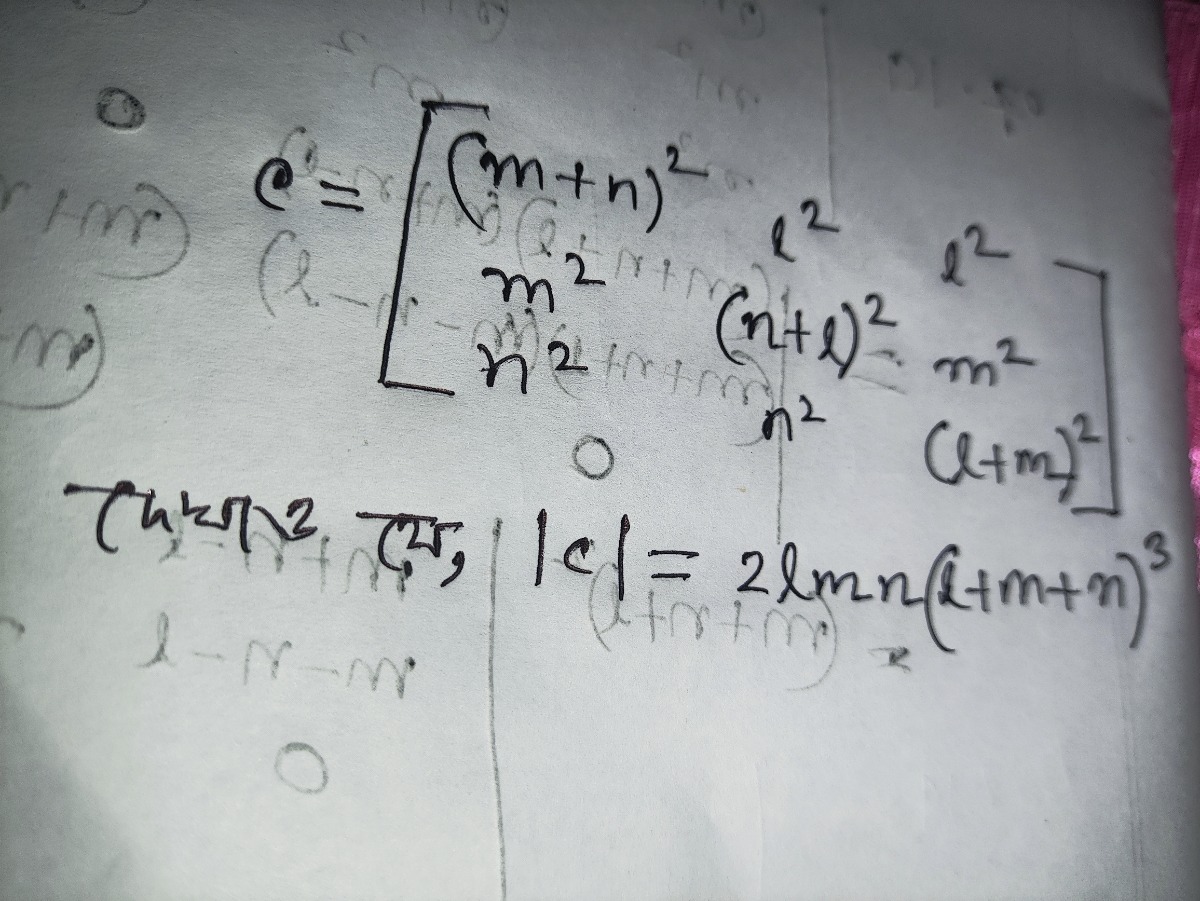 C = [(m+n)² l² l²
m² (n+l)² m²
n² n² (l+m)²]
দেখাও যে, |C| = 2lmn(l+m+n)³